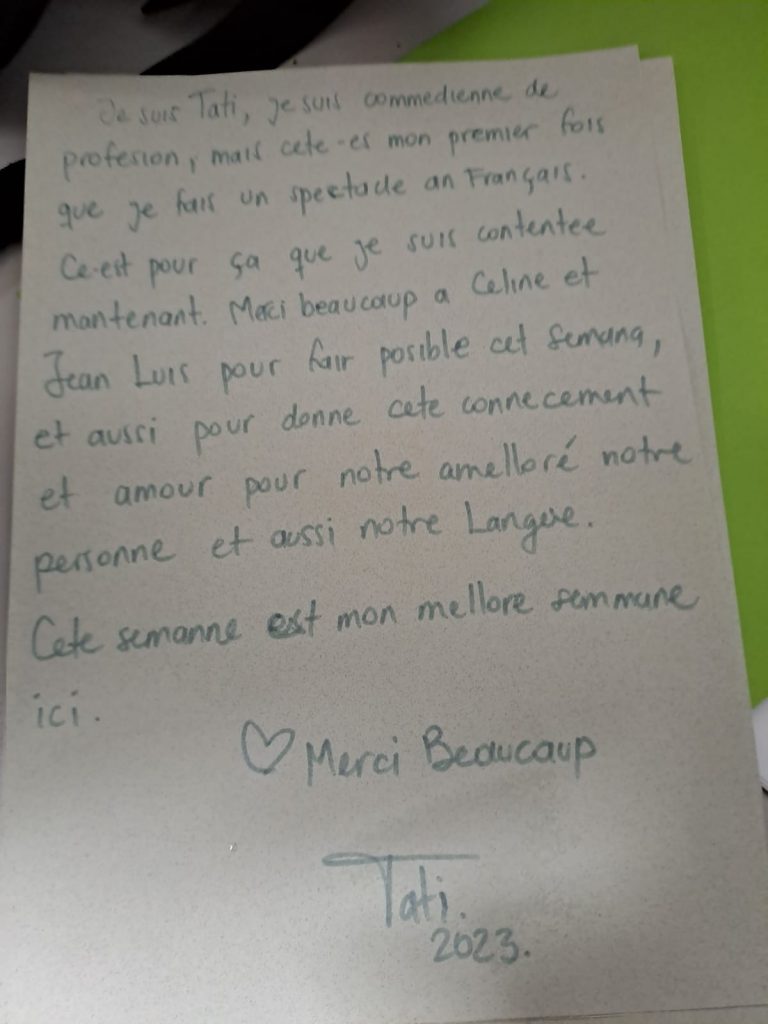 Je suis Tati, je suis commedienne de
profesion, mais cete-es mon premier fois
que je fais un spectacle an Français.
Ce-est pour ça que je suis contentee
mantenant. Merci beaucaup a Celine et
Jean Luis pour fair posible cet semana,
et aussi pour donne cete connecement
et amour pour notre amelloré notre
personne et aussi notre Langue.
Cete semanne est mon mellore semmane
ici.
♡ Merci Beaucaup
Tati.
2023.